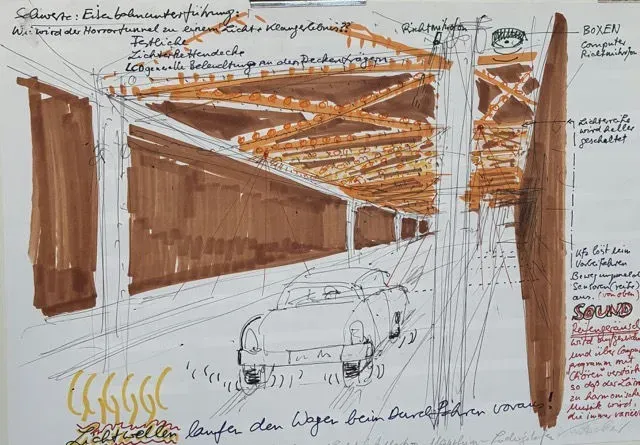 Schwerte: Eisenbahnunterführung:
Wie wird der Horrortunnel zu einem Licht + Klangerlebnis??
Festliche
Lichterkettendecke
Beleuchtung an den Deckenträgern
Richtmikrofon
BOXEN
Computer
Richtmikrofon
Lichterreihe
wird heller
geschaltet
Ufo löst beim
Vorbeifahren
Sensoren
aus. (von oben)
SOUND
Reifengeräusch
wird
und über Computer
programm mit
Chören verstärkt
so daß der Lärm
zu harmonischer
Musik wird,
die immer
Lichtwellen laufen den Wagen beim Durchfahren voraus!